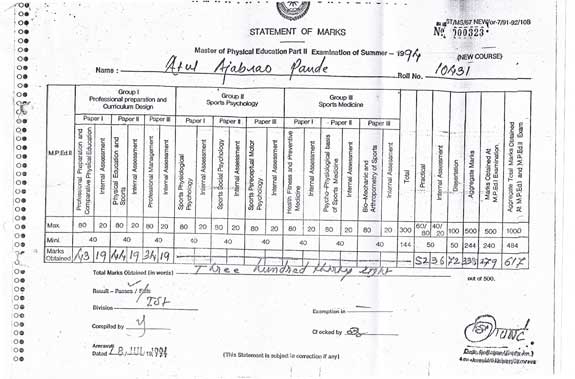 ST/MS/67 NEW/or-7/91-92/10B
No. 700323
STATEMENT OF MARKS
Master of Physical Education Part II Examination of Summer - 1994
(NEW COURSE)
Name : Atul Ajabrao Pande Roll No. 10431
M.P.Ed II
Group I Professional preparation and Curriculum Design
Group II Sports Psychology
Group III Sports Medicine
Paper I Paper II Paper III Paper I Paper II Paper III Paper I Paper II Paper III
Professional Preparation and Comparative Physical Education
Internal Assessment
Physical Education and Sports
Internal Assessment
Professional Management
Internal Assessment
Sports Physiological Psychology
Internal Assessment
Sports Social Psychology
Internal Assessment
Sports Perceptual Motor Psychology
Internal Assessment
Health Fitness and Preventive Medicine
Internal Assessment
Psycho-Physiological basis of Sports Medicine
Internal Assessment
Bio-Mechanic and Anthropometry of Sports
Internal Assessment
Total
Practical
Internal Assessment
Dissertation
Aggregate Marks
Marks Obtained At M.P.Ed I Examination.
Aggregate Total Marks Obtained At M.P.Ed I and M.P.Ed II Exam
Max. 80 20 80 20 80 20 80 20 80 20 80 20 80 20 80 20 80 20 300 60/80 40/20 100 500 500 1000
Mini. 40 40 40 40 40 40 40 40 40 144 50 50 244 240 484
Marks Obtained 43 19 44 19 34 19 52 36 72 338 279 617
Total Marks Obtained (in words) Three hundred thirty eight out of 500.
Result - Passes / Fails
Division Ist
Exemption in
Compiled by
Checked by
Amravati
Dated 28 JUL 1994
(This Statement is subject to correction if any)